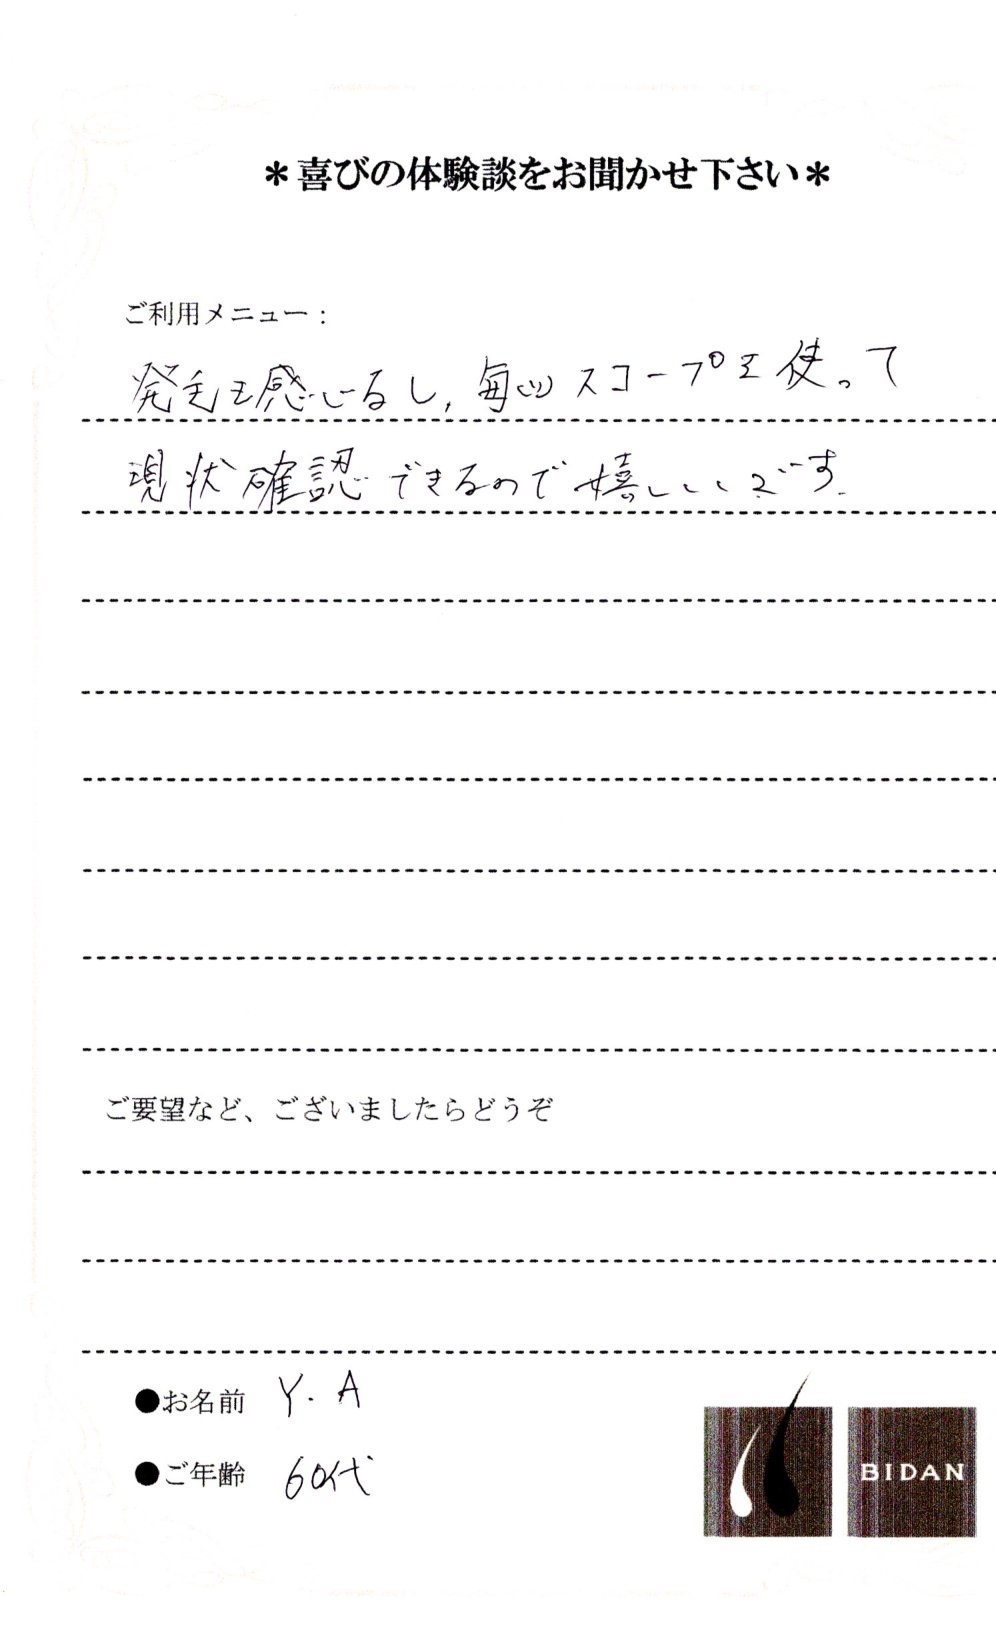 ＊喜びの体験談をお聞かせ下さい＊
ご利用メニュー：
発毛を感じるし、毎回スコープを使って
現状確認できるので嬉しいです。
ご要望など、ございましたらどうぞ
●お名前 Y.A
●ご年齢 60代
BIDAN